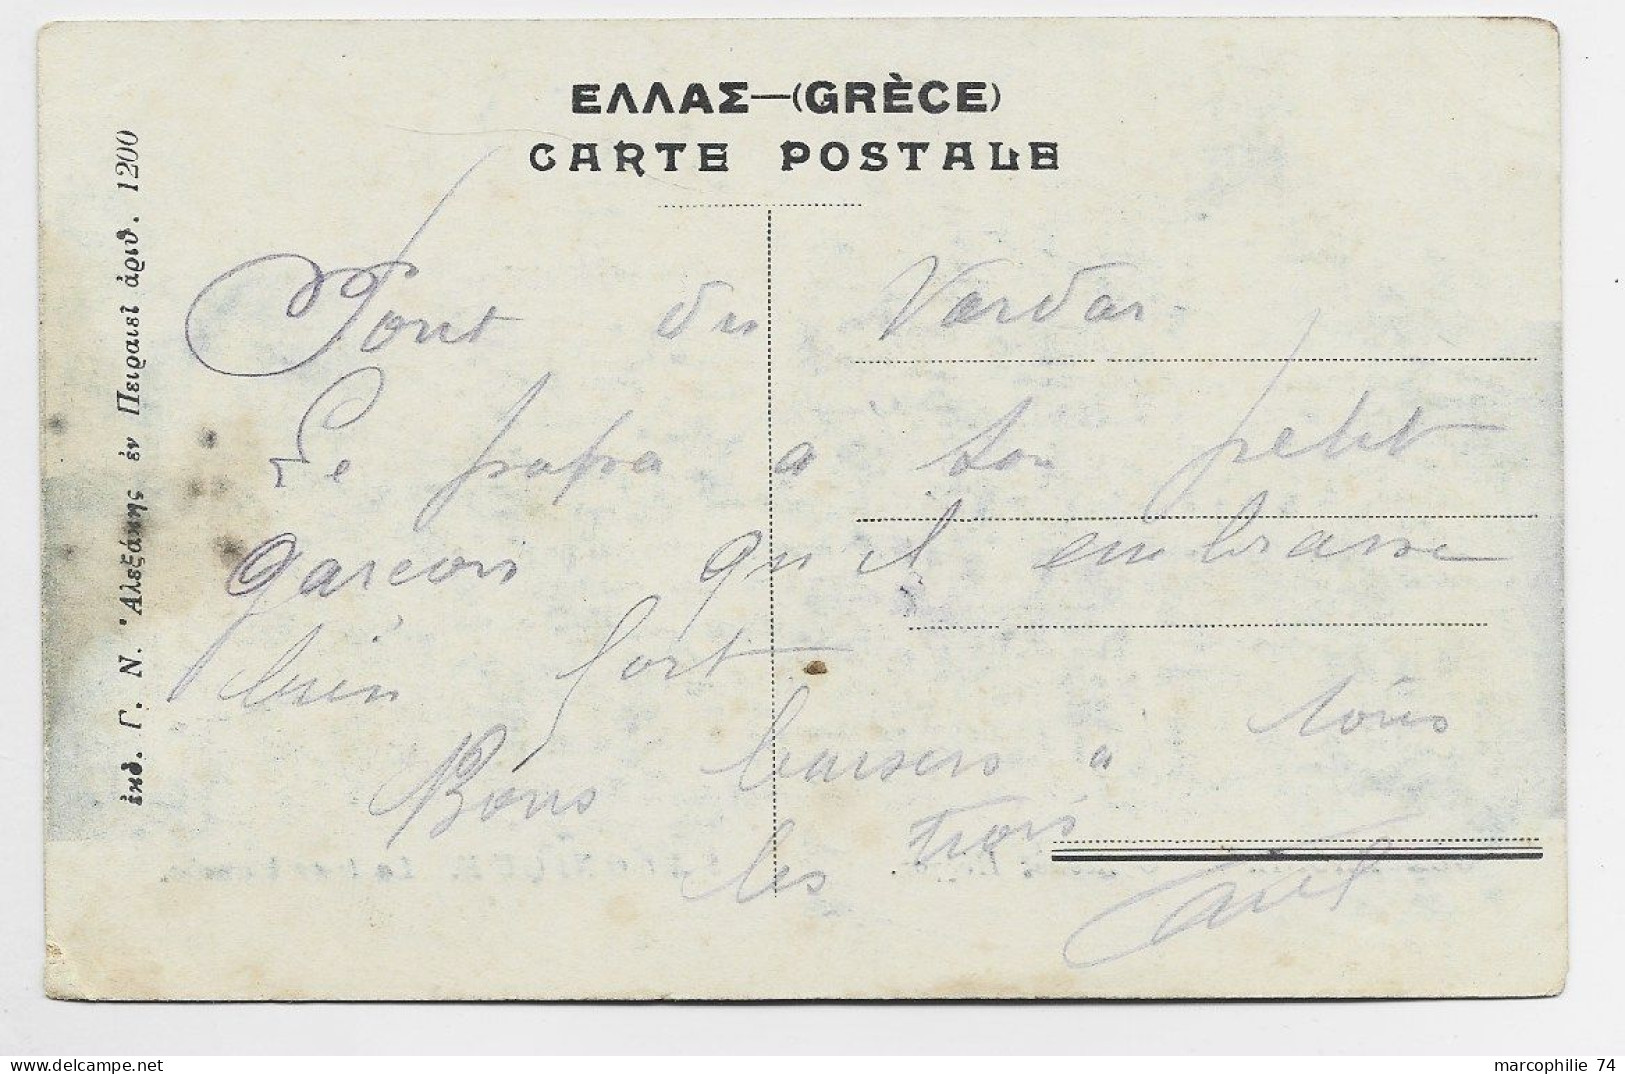 ΕΛΛΑΣ—(GRÈCE)
CARTE POSTALE
ἐκδ. Γ. Ν. Ἀλεξάκης ἐν Πειραιεῖ ἀριθ. 1200
Pont du Vardar.
Le papa a son petit
garcon qu'il embrasse
bien fort
Bons baisers a tous
les trois
marcophilie 74